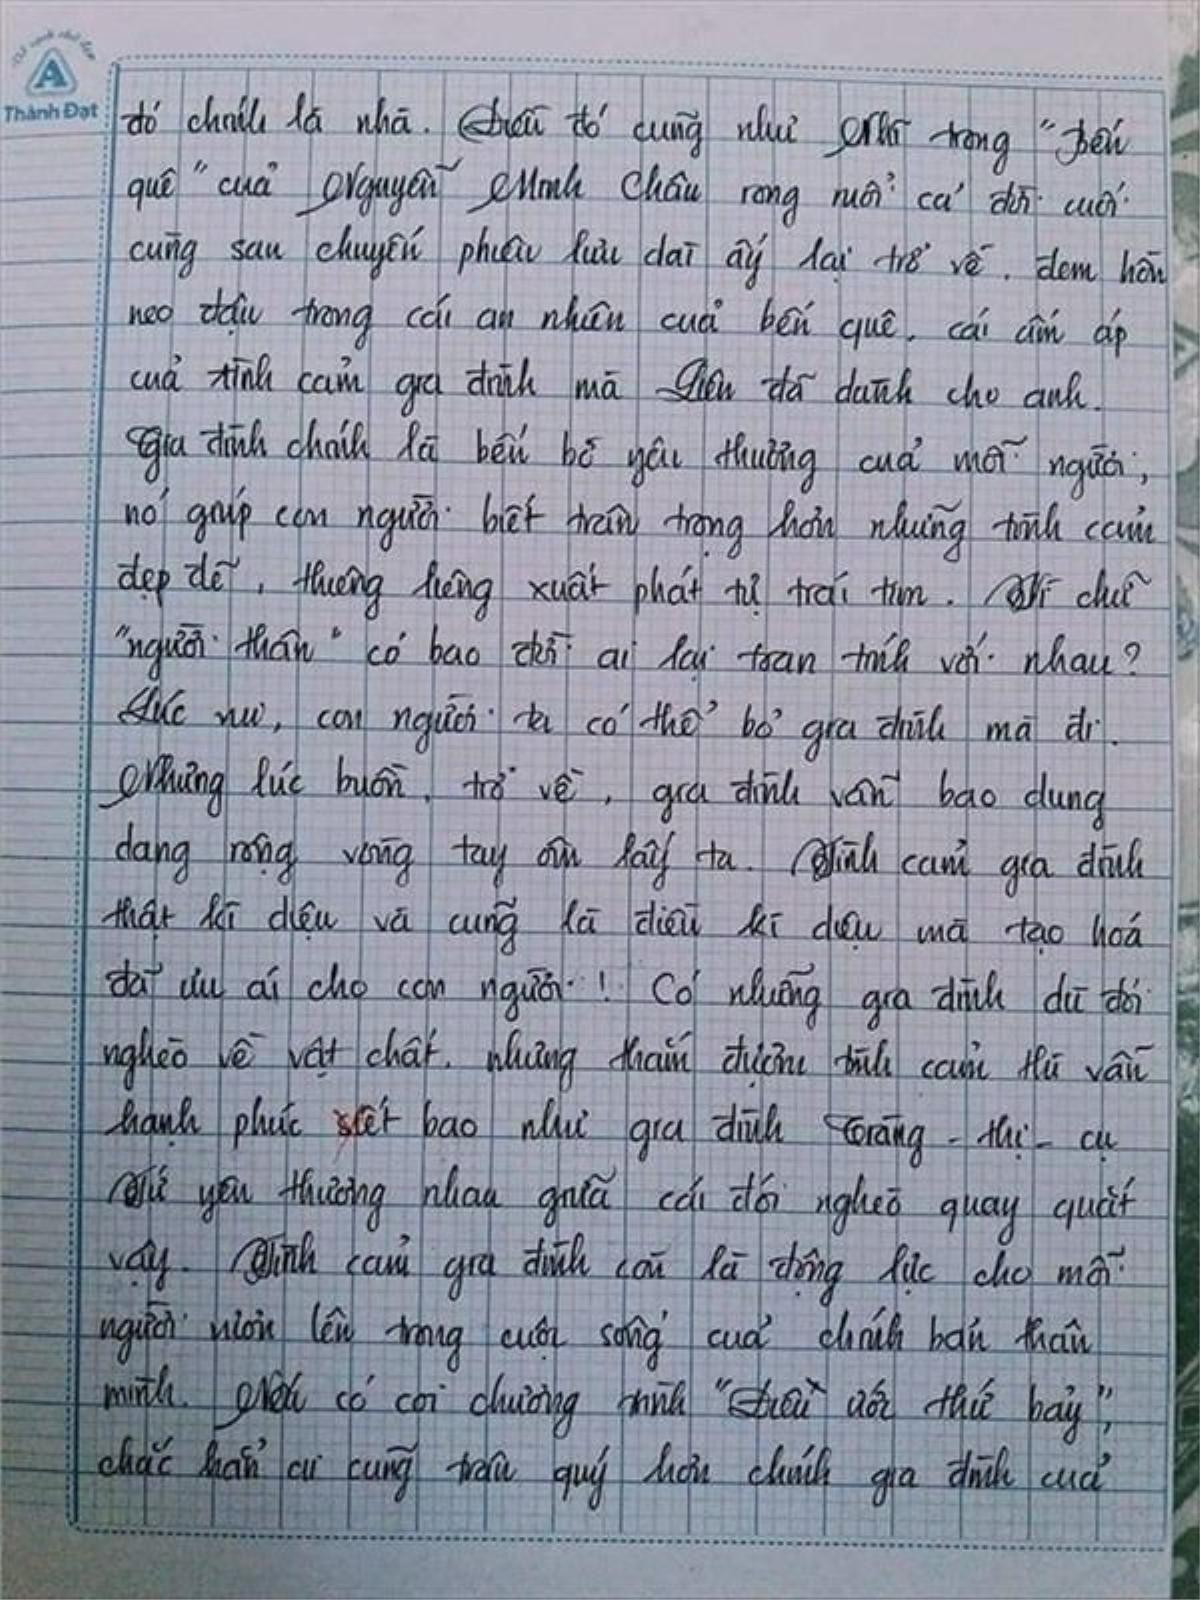 Thành Đạt
đó chính là nhà. Điều đó cũng như Nhĩ trong "Bến
quê" của Nguyễn Minh Châu rong ruổi cả đời cuối
cùng sau chuyến phiêu lưu dài ấy lại trở về. đem hồn
neo đậu trong cái an nhiên của bến quê, cái ấm áp
của tình cảm gia đình mà Liên đã dành cho anh.
Gia đình chính là bến bờ yêu thương của mỗi người,
nó giúp con người biết trân trọng hơn những tình cảm
đẹp đẽ, thiêng liêng xuất phát từ trái tim. Vì chữ
"người thân" có bao đời ai lại toan tính với nhau?
Lúc vui, con người ta có thể bỏ gia đình mà đi.
Nhưng lúc buồn, trở về, gia đình vẫn bao dung
dang rộng vòng tay ôm lấy ta. Tình cảm gia đình
thật kì diệu và cũng là điều kì diệu mà tạo hoá
đã ưu ái cho con người! Có những gia đình dù đói
nghèo về vật chất, nhưng thắm đượm tình cảm thì vẫn
hạnh phúc xiết bao như gia đình Tràng - thị - cụ
Tứ yêu thương nhau giữa cái đói nghèo quay quắt
vậy. Tình cảm gia đình còn là động lực cho mỗi
người vươn lên trong cuộc sống của chính bản thân
mình. Nếu có coi chương trình "Điều ước thứ bảy",
chắc hẳn cũng trân quý hơn chính gia đình của